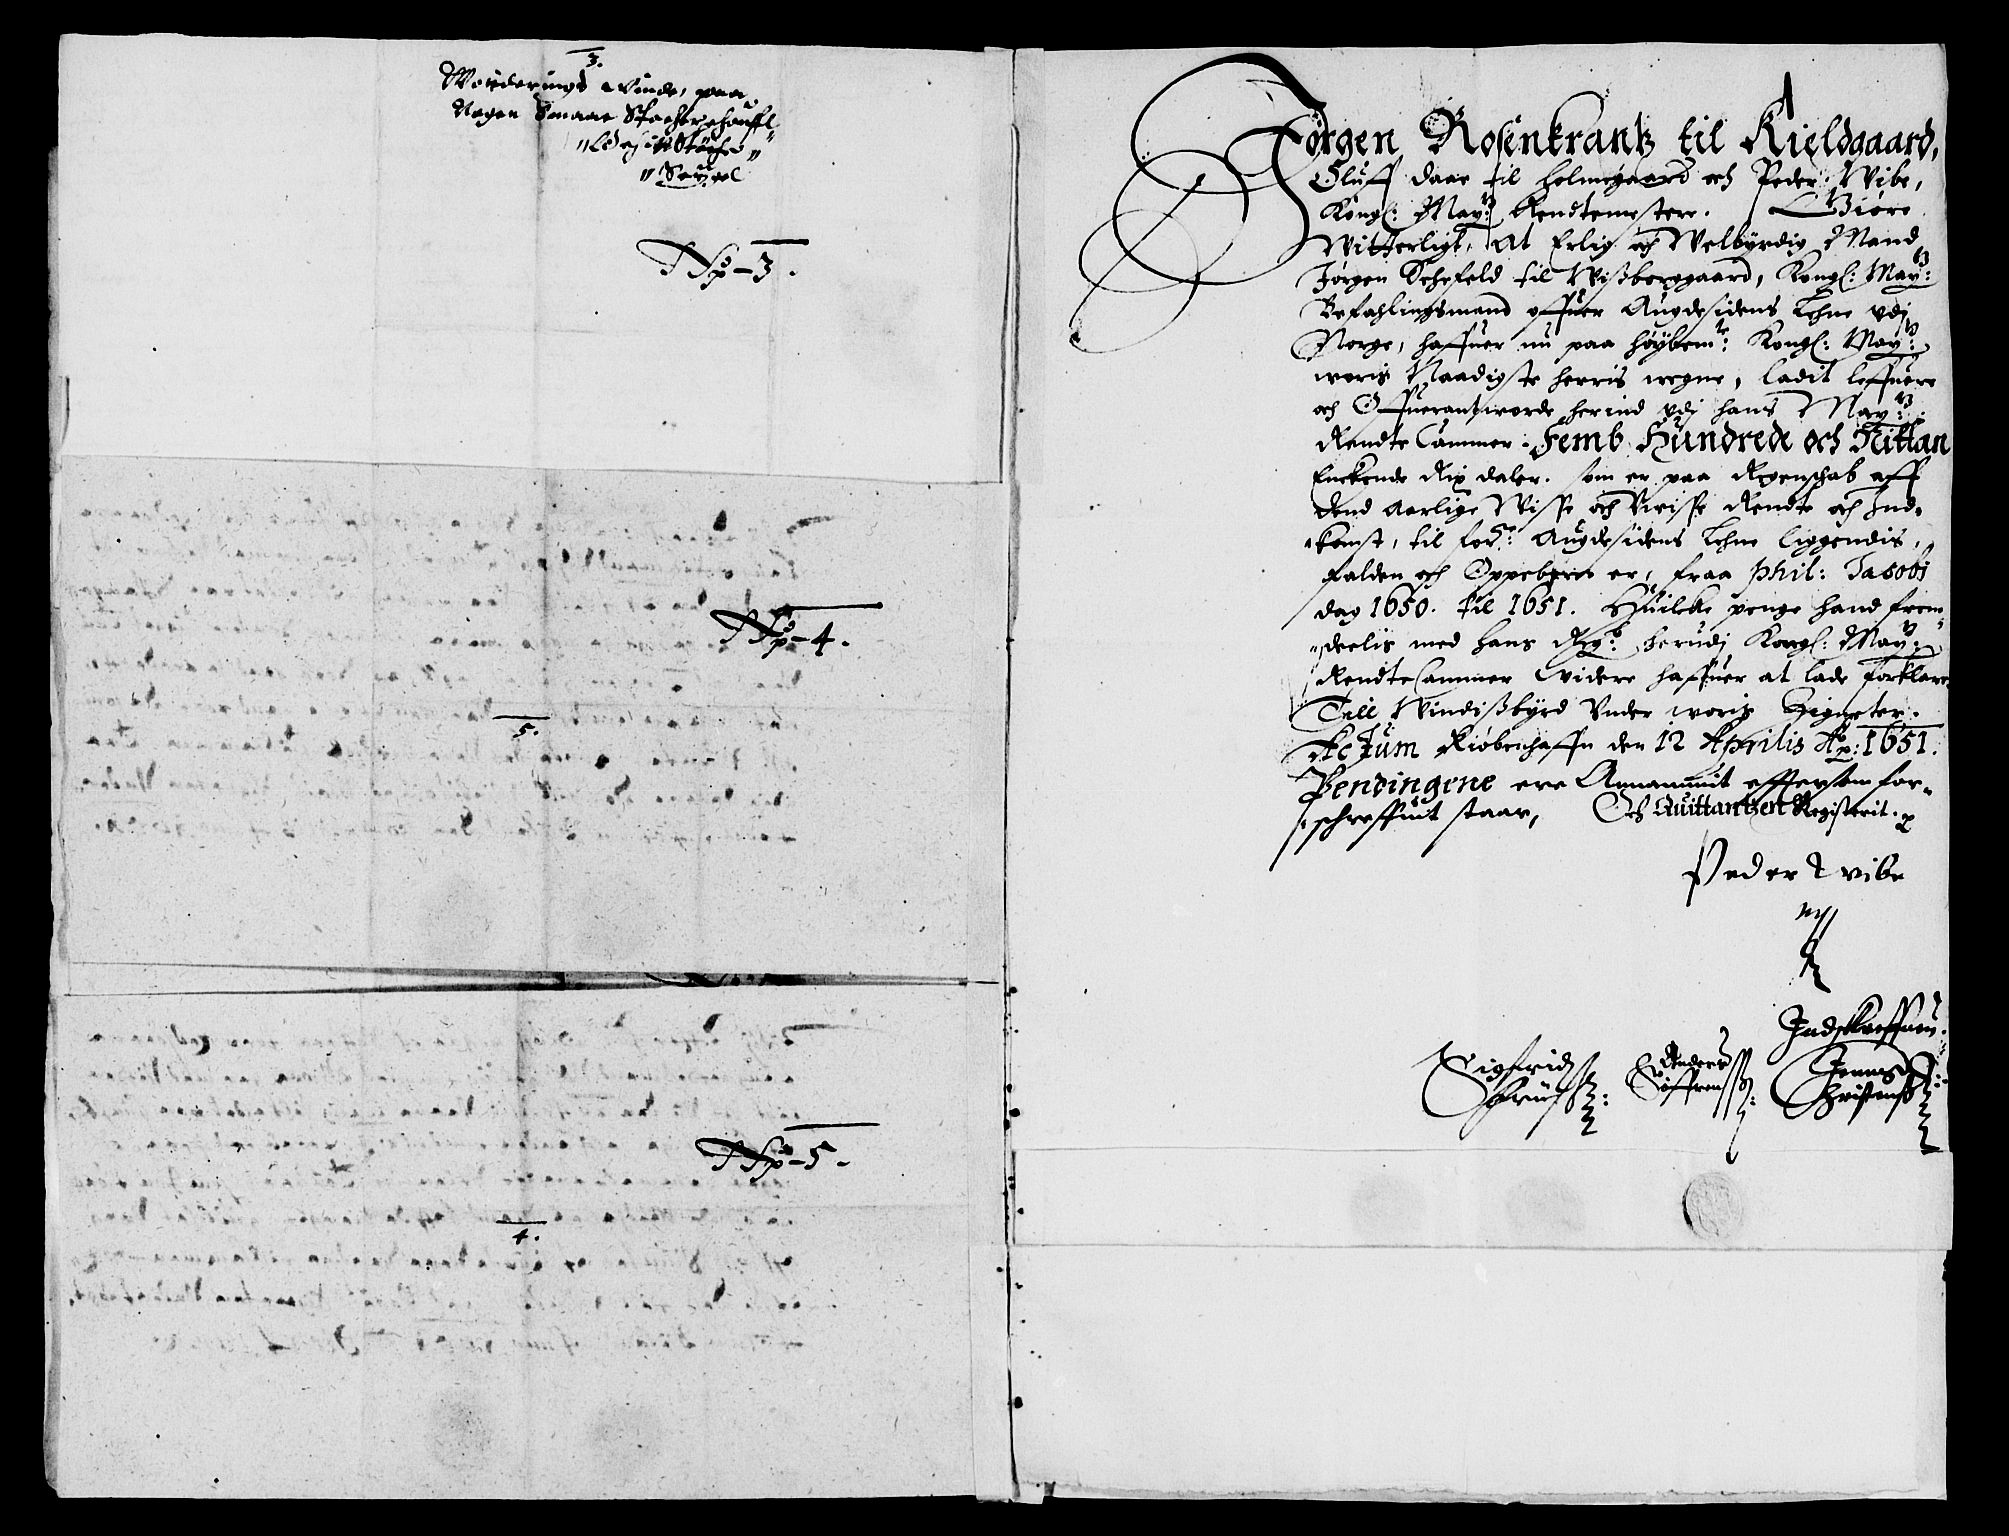 3.
Worderings winde, paa
Nogen Smaae
No-3.
No-4.
5.
No-5.
4.
Jørgen Rosenkrantz til Kieldgaard,
Oluff Daae til Holmegaard och Peder Wibe,
Kongl: May:tz Rendtemestere. Giøre
Witterligt, At Erlig och Welbyrdig Mand
Jørgen Schefeld til Wißborggaard, Kongl: May:tz
Befahlingsmand offuer Augdesidens Lehne udj
Norge, haffuer nu paa høybem:te Kongl: May:tz
woris Naadigste herris wegne, ladit leffuere
och Offuerantworde herind udj hans May:tz
Rendte Cammer. Femb Hundrede och Nittan
Enckende Rix daler. som er paa Regenschab aff
dend Aarlige Wisse och Uwisse Rendte och Ind-
komst, til for:ne Augdesidens Lehne liggendis,
falden och Oppeboren er, fraa Phil: Jacobi
dag 1650. til 1651. Huilcke penge hand frem-
deelis med hans Reg:b herudj Kongl: May:tz
RendteCammer widere haffuer at lade forklare
Till Windißbyrd Under woris Zigneter.
Actum Kiøbenhaffn den 12 Aprilis Ao: 1651.
Pendingene ere Annammit effterson for-
schreffuit staar, Och Quittantzen Registerit.
Peder wibe
mp
Indskreffuen.
Sigfrid
Anders
Søffrens
Jenns
Christens